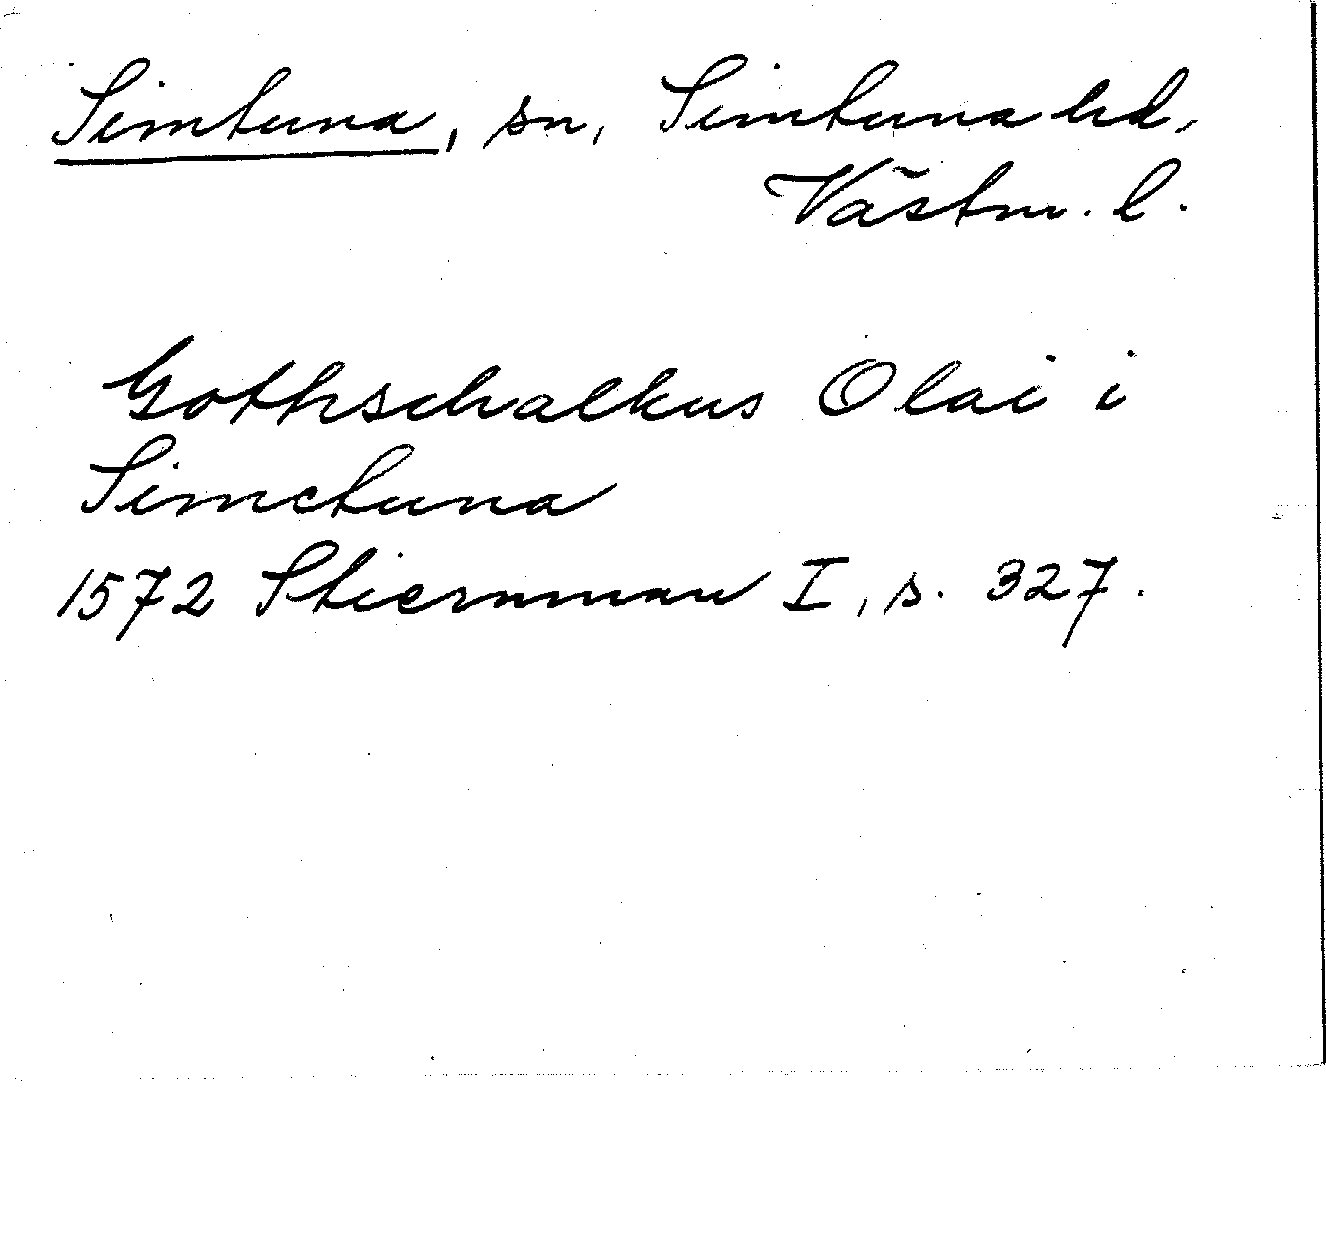 Simtuna, sn, Simtuna hd,
Västm. l.
Gothschalkus Olai i
Simctuna
1572 Stiernman I, s. 327.